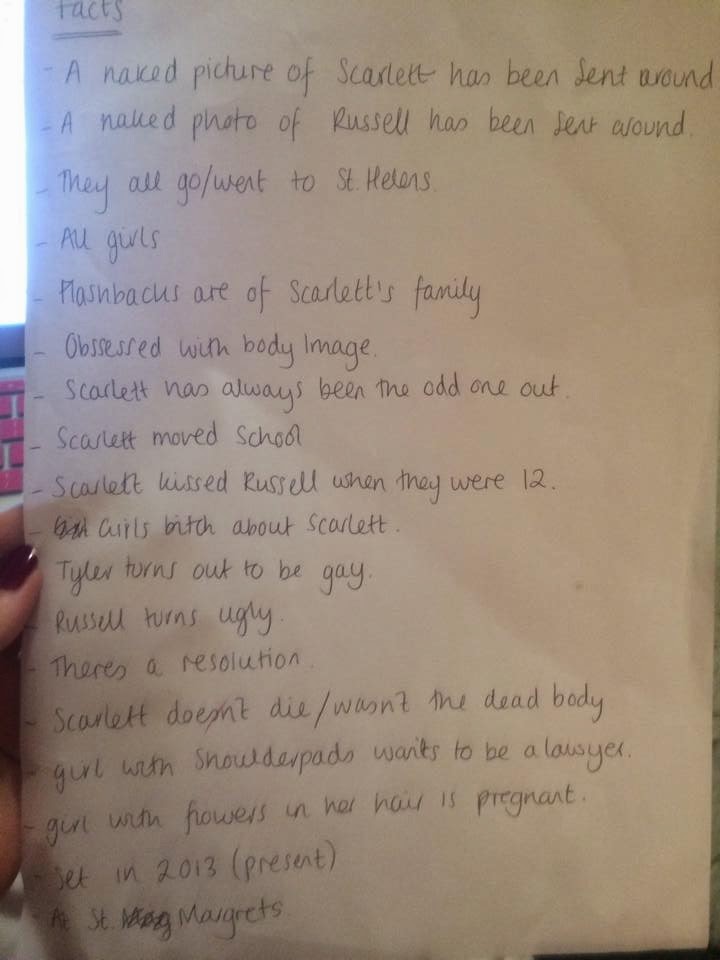 Facts
- A naked picture of Scarlett has been sent around
- A naked photo of Russell has been sent around.
- They all go/went to St. Helens.
- All girls
- Flashbacks are of Scarlett's family
- Obssessed with body Image.
- Scarlett has always been the odd one out.
- Scarlett moved School
- Scarlett kissed Russell when they were 12.
- Girls bitch about Scarlett.
Tyler turns out to be gay.
- Russell turns ugly.
- Theres a resolution.
- Scarlett doesn't die/wasn't the dead body
- girl with Shoulderpads wants to be a lawyer.
- girl with flowers in her hair is pregnant.
- Set in 2013 (present)
- At St. Margrets